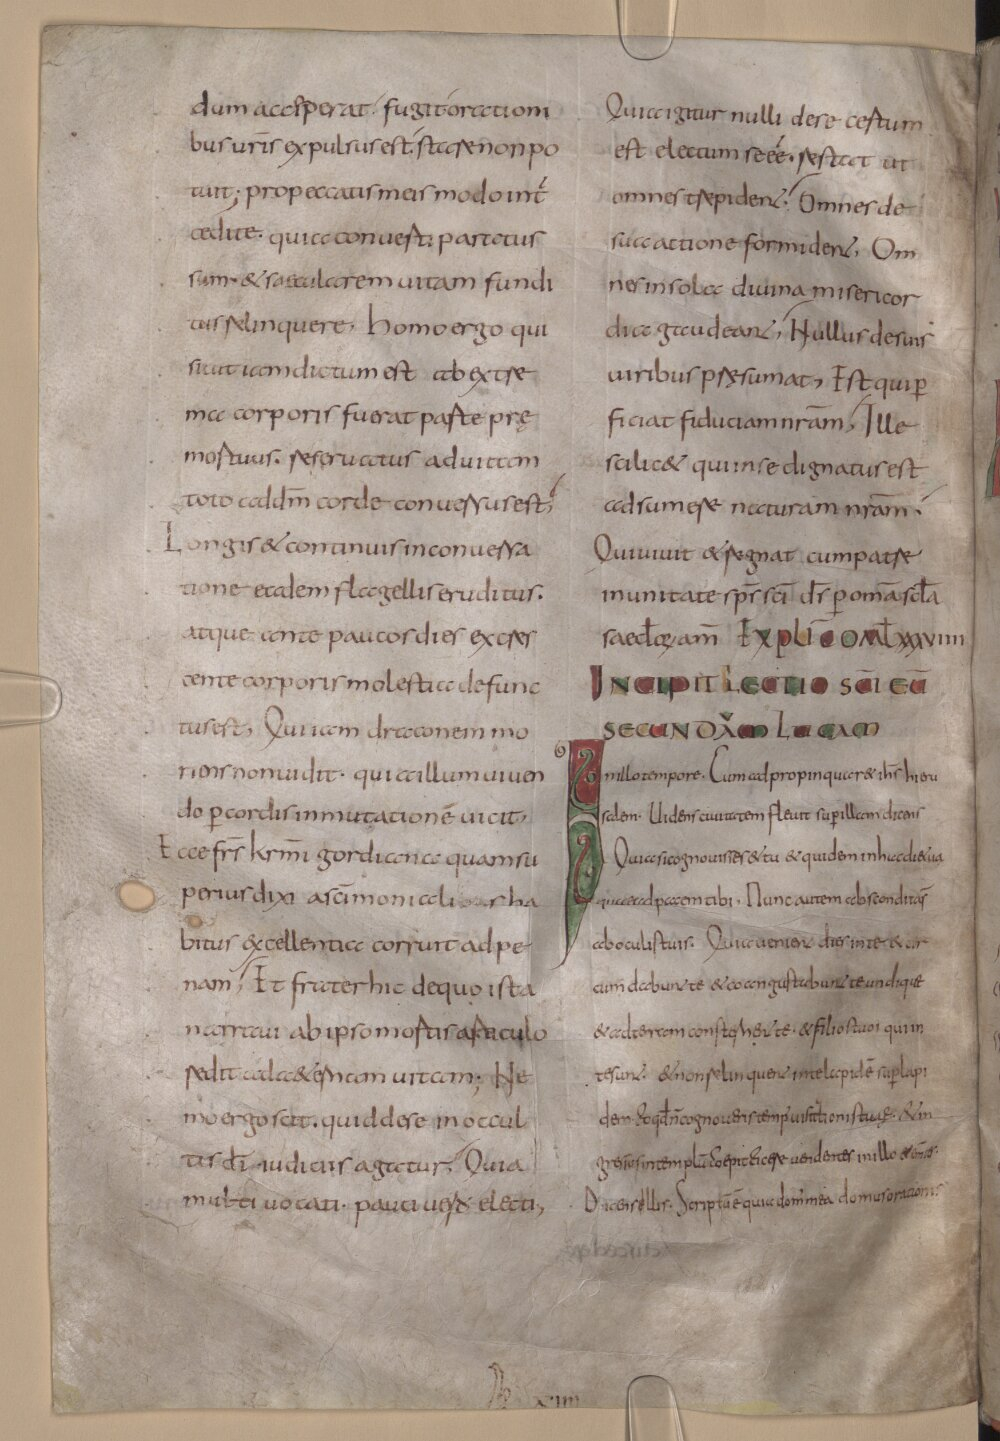 dum acceperat. fugit orationi
bus uris expulsus est, stare non po
tuit; pro peccatis meis modo inter
cedite. quia conuerti paratus
sum. & saecularem uitam fundi
tus relinquere, homo ergo qui
sicut iam dictum est ab extre
ma corporis fuerat parte prę
mortuus. reseruatus ad uitam
toto ad dm corde conuersus est;
Longis & continuis in conuersa
tione eadem flagellis eruditus.
atque ante paucos dies excres
cente corporis molestia defunc
tus est, Qui iam draconem mo
riens non uidit. quia illum uiuen
do p cordis inmutatione uicit,
Ecce frs krmi gordiana quam su
perius dixi a scimoniali ha
bitus excellentia corruit ad pe
nam; Et frater hic de quo ista
narraui ab ipso mortis articulo
redit ad aeternam uitam; Ne
mo ergo scit. quid de se in occul
tis di iudiciis agatur; Quia
multi uocati. pauci uero electi,
Quia igitur nulli de se certum
est electum se ee. restat ut
omnes trepident; Omnes de
sua actione formident, Om
nes in sola diuina misericor
dia gaudeant; Nullus de suis
uiribus presumat, Est qui p
ficiat fiduciam nram; Ille
scilic& qui in se dignatus est
adsumere naturam nram;
Qui uiuit & regnat cum patre
in unitate sps sci ds p oma scla
saeclorum am Explic omlxxxviiii
Incipit lectio sci eu
secundum Lucam
In illo tempore. Cum adpropinquar& ihs hieru
salem. Uidens ciuitatem fleuit super illam dicens
Quia si cognouisses & tu & quidem in hac die tua
quae ad pacem tibi. Nunc autem abscondita s
ab oculis tuis. Quia uenient dies in te & cir
cumdabunt te & coangustabunt te undique
& ad terram consternent te. & filios tuos qui in
te sunt & non relinquent in te lapidē sup lapi
dem eo qd n cognoueris temp uisitationis tuae. & in
gressus in templū coepit eicere uendentes in illo & ementes.
Dicens illis. Scriptū ē quia dom mea domus orationis